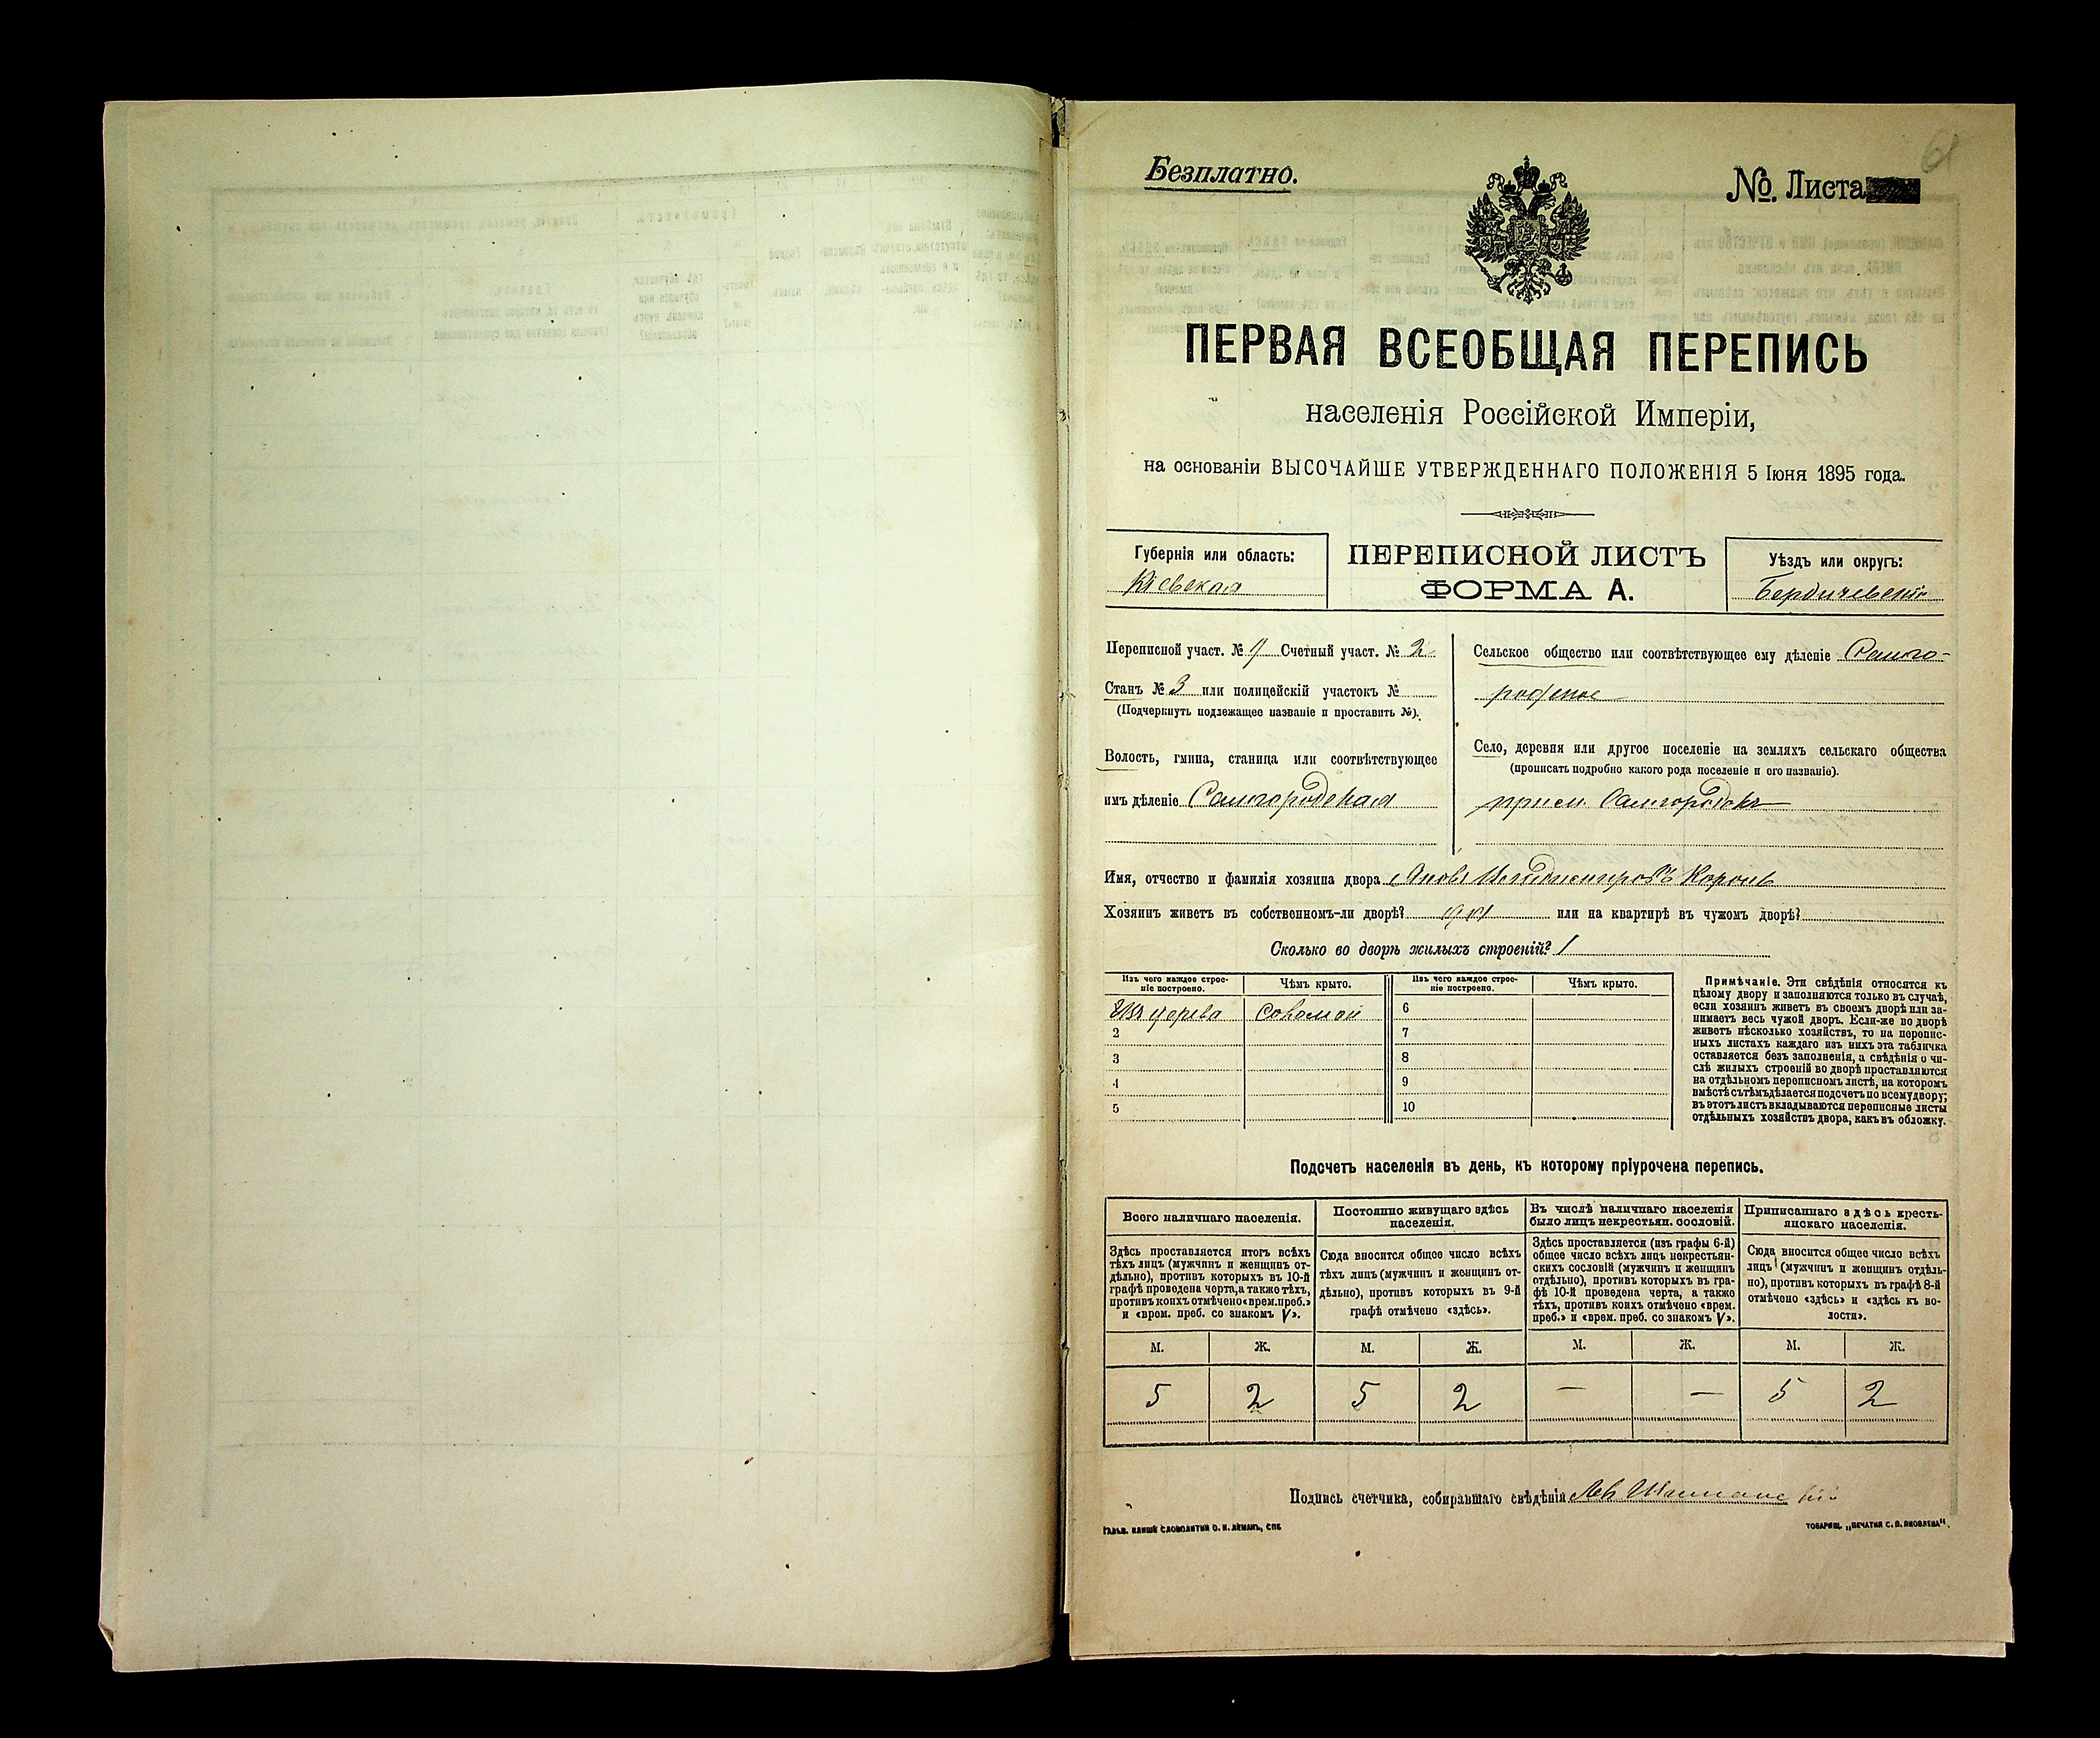 61
Безплатно.
№. Листа
ПЕРВАЯ ВСЕОБЩАЯ ПЕРЕПИСЬ
населенія Россійской Имперіи,
на основаніи ВЫСОЧАЙШЕ УТВЕРЖДЕННАГО ПОЛОЖЕНІЯ 5 Іюня 1895 года.
Губернія или область:
Кіевская
ПЕРЕПИСНОЙ ЛИСТЪ
ФОРМА А.
Уѣздъ или округъ:
Бердичевскій
Переписной участ. № Счетный участ. № 2
Станъ № 3 или полицейскій участокъ №
(Подчеркнуть подлежащее названіе и проставить №).
Волость, гмина, станица или соотвѣтствующее
имъ дѣленіе Самгородская
Сельское общество или соотвѣтствующее ему дѣленіе Самго-
родское
Село, деревня или другое поселеніе на земляхъ сельскаго общества
(прописать подробно какого рода поселеніе и его названіе).
Самгородокъ
Имя, отчество и фамилія хозяина двора Яковъ Король
Хозяинъ живетъ въ собственномъ-ли дворѣ? да или на квартирѣ въ чужомъ дворѣ?
Сколько во дворѣ жилыхъ строеній? 1
Изъ чего каждое строе-
ніе построено.
Чѣмъ крыто.
Изъ чего каждое строе-
ніе построено.
Чѣмъ крыто.
Изъ дерева соломой 6
2 7
3 8
4 9
5 10
Примѣчаніе. Эти свѣдѣнія относятся къ
цѣлому двору и заполняются только въ случаѣ,
если хозяинъ живетъ въ своемъ дворѣ или за-
нимаетъ весь чужой дворъ. Если-же во дворѣ
живетъ нѣсколько хозяйствъ, то на перепис-
ныхъ листахъ каждаго изъ нихъ эта табличка
оставляется безъ заполненія, а свѣдѣнія о чи-
слѣ жилыхъ строеній во дворѣ проставляются
на отдѣльномъ переписномъ листѣ, на которомъ
вмѣстѣ съ тѣмъ дѣлается подсчетъ по всему двору;
въ этотъ листъ вкладываются переписные листы
отдѣльныхъ хозяйствъ двора, какъ въ обложку.
Подсчетъ населенія въ день, къ которому пріурочена перепись.
Всего наличнаго населенія.
Здѣсь проставляется итогъ всѣхъ
тѣхъ лицъ (мужчинъ и женщинъ от-
дѣльно), противъ которыхъ въ 10-й
графѣ проведена черта, а также тѣхъ,
противъ коихъ отмѣчено «врем. преб.»
и «врем. преб. со знакомъ V».
Постоянно живущаго здѣсь
населенія.
Сюда вносится общее число всѣхъ
тѣхъ лицъ (мужчинъ и женщинъ от-
дѣльно), противъ которыхъ въ 9-й
графѣ отмѣчено «здѣсь».
Въ числѣ наличнаго населенія
было лицъ некрестьян. сословій.
Здѣсь проставляется (изъ графы 6-й)
общее число всѣхъ лицъ некрестьян-
скихъ сословій (мужчинъ и женщинъ
отдѣльно), противъ которыхъ въ гра-
фѣ 10-й проведена черта, а также
тѣхъ, противъ коихъ отмѣчено «врем.
преб.» и «врем. преб. со знакомъ V».
Приписаннаго здѣсь кресть-
янскаго населенія.
Сюда вносится общее число всѣхъ
лицъ (мужчинъ и женщинъ отдѣль-
но), противъ которыхъ въ графѣ 8-й
отмѣчено «здѣсь» и «здѣсь къ во-
лости».
М. Ж. М. Ж. М. Ж. М. Ж.
5 2 5 2 — — 5 2
Подпись счетчика, собиравшаго свѣдѣнія
ГАЛЬВ. КЛИШЕ СЛОВОЛИТНИ О. И. ЛЕМАНЪ, СПБ
ТОВАРИЩ. „ПЕЧАТНЯ С. П. ЯКОВЛЕВА".